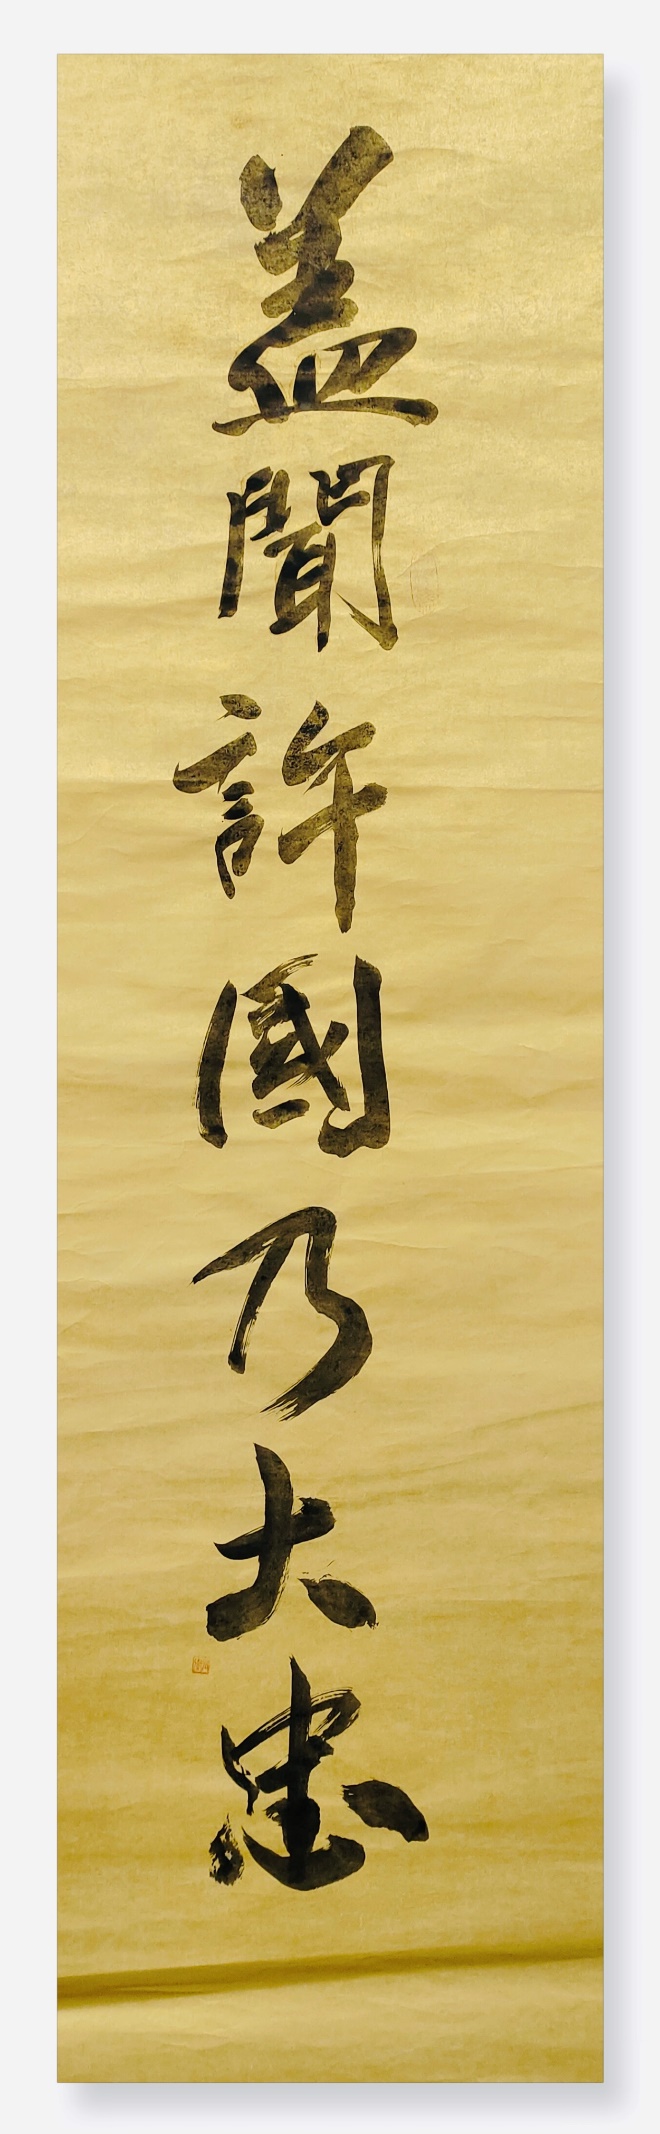 盖聞許國乃大忠